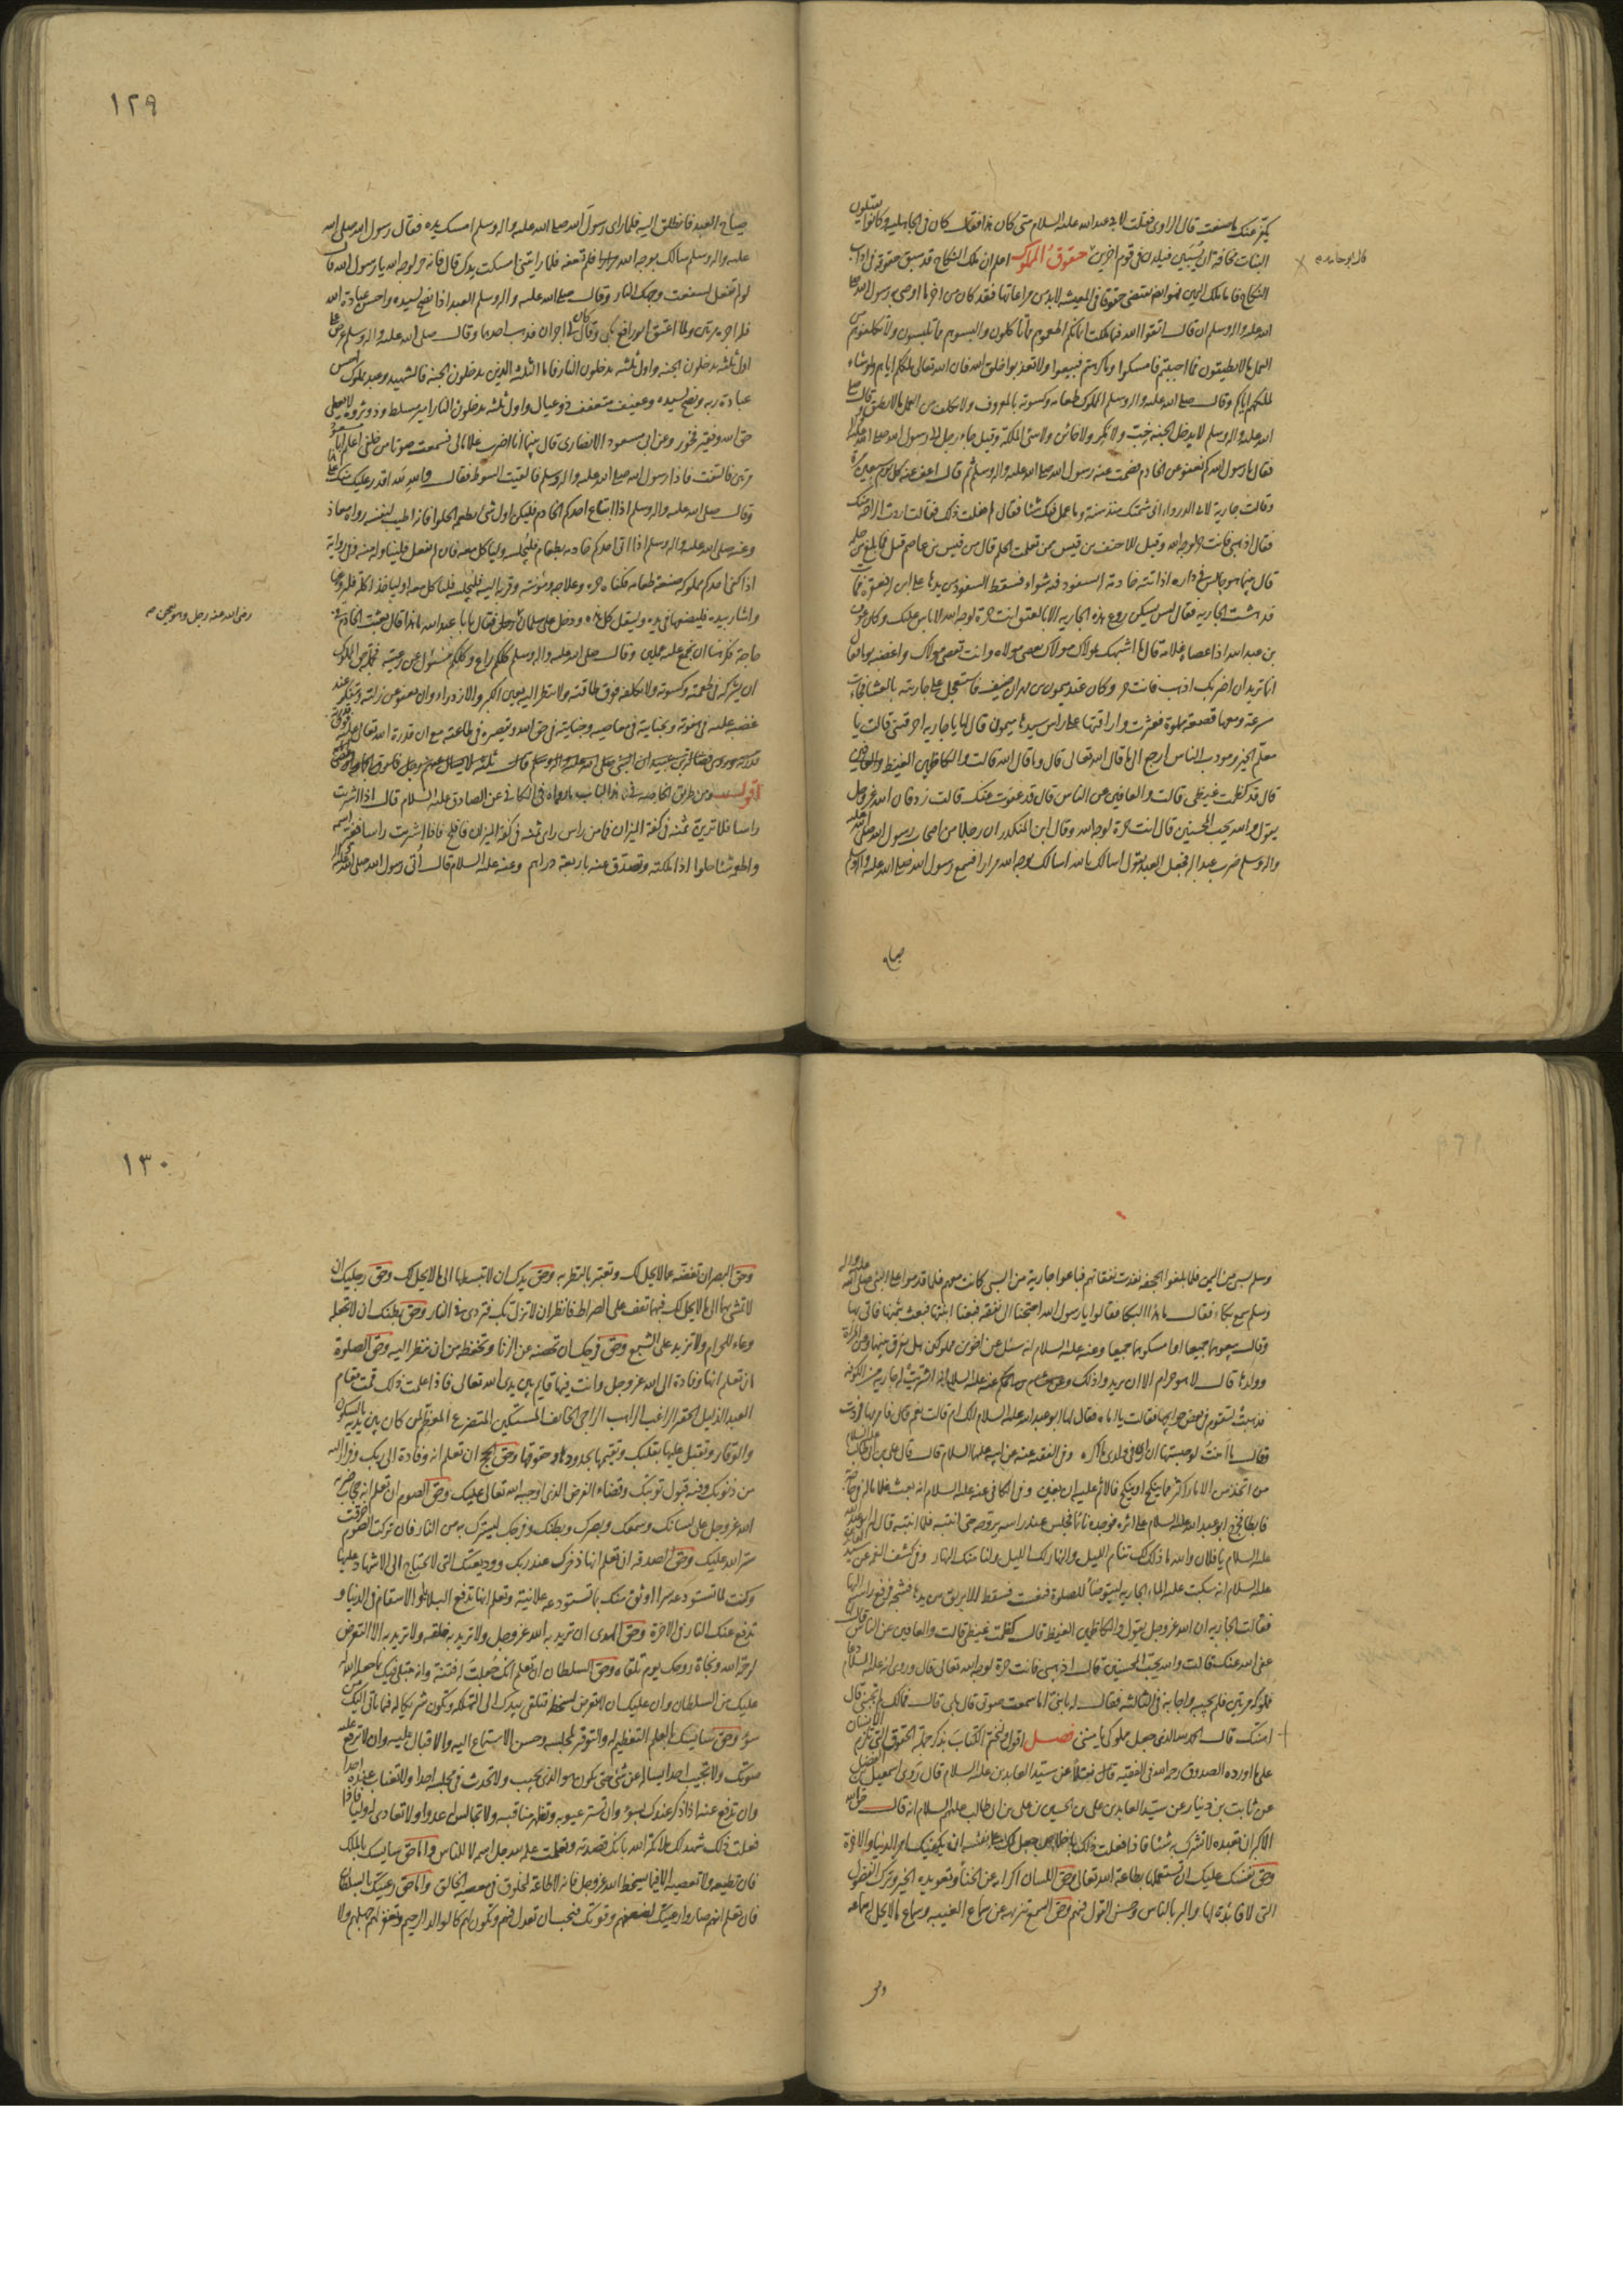 يكفر عنك ما صنعت قال الراوى فقلت لابى عبد الله عليه السلام متى كان هذا فقال كان فى الجاهلية وكانوا يقتلون
البنات مخافة ان يسبين فيلدن فى قوم اخرين حقوق المملوك اعلم ان ملك النكاح قد سبق حقوقه فى اداب
النكاح فاما ملك اليمين فهو ايضا يقتضى حقوقا فى المعيشة لابد من مراعاتها فقد كان من اخر ما اوصى به رسول الله صلى
الله عليه واله وسلم ان قال اتقوا الله فيما ملكت ايمانكم اطعموهم مما تاكلون والبسوهم مما تلبسون ولا تكلفوهم من
العمل ما لا يطيقون فما احببتم فامسكوا وما كرهتم فبيعوا ولا تعذبوا خلق الله فان الله تعالى ملككم اياهم ولو شاء
لملكهم اياكم وقال صلى الله عليه واله وسلم للمملوك طعامه وكسوته بالمعروف ولا يكلف من العمل ما لا يطيق وقال صلى
الله عليه واله وسلم لا يدخل الجنة خب ولا متكبر ولا خائن ولا سئ الملكة وقيل جاء رجل الى رسول الله صلى الله عليه واله
فقال يا رسول الله كم نعفو عن الخادم فصمت عنه رسول الله صلى الله عليه واله وسلم ثم قال اعف عنه كل يوم سبعين مرة
وقالت جارية لابى الدرداء انى سممتك منذ سنة وما عمل فيك شيئا فقال لم فعلت ذلك فقالت اردت الراحة منك
فقال اذهبى فانت حرة لوجه الله وقيل للاحنف بن قيس ممن تعلمت الحلم قال من قيس بن عاصم قيل فما بلغ من حلمه
قال بينما هو جالس فى داره اذ اتته خادمة له بسفود فيه شواء فسقط السفود من يدها على ابن له فعقره فمات
فدهشت الجارية فقال ليس يسكن روع هذه الجارية الا بالعتق انت حرة لوجه الله لا باس عليك وكان عون
بن عبد الله اذا عصاه غلامه قال ما اشبهك بمولاك مولاك يعصى مولاه وانت تعصى مولاك واغضبه يوما فقال
انما تريد ان اضربك اذهب فانت حر وكان عند ميمون بن مهران ضيف فاستعجل على جاريته بالعشاء فجاءت
مسرعة ومعها قصعة مملوة فعثرت واراقتها على راس سيدها ميمون فقال يا جارية احرقتنى قالت يا
معلم الخير ومودب الناس ارجع الى ما قال الله تعالى قال وما قال الله قالت والكاظمين الغيظ
قال قد كظمت غيظى قالت والعافين عن الناس قال قد عفوت عنك قالت زد فان الله عز وجل
يقول والله يحب المحسنين قال انت حرة لوجه الله وقال ابن المنكدر ان رجلا من اصحاب رسول الله صلى الله عليه
واله وسلم ضرب عبدا له فجعل العبد يقول اسالك بالله اسالك بوجه الله مرارا فسمع رسول الله صلى الله عليه واله وسلم
صياح
قال ابو حامد
١٢٩
صياح العبد فانطلق اليه فلما راى رسول الله صلى الله عليه واله وسلم امسك يده فقال رسول الله صلى الله
عليه واله وسلم سالك بوجه الله فلم تعفه فلما رايتنى امسكت يدك قال فانه حر لوجه الله يا رسول الله قال
لو لم تفعل لسفعت وجهك النار وقال صلى الله عليه واله وسلم العبد اذا نصح لسيده واحسن عبادة الله
فله اجره مرتين ولما اعتق ابو رافع بكى وقال كان لى اجران فذهب احدهما وقال صلى الله عليه واله وسلم عرض على
اول ثلثة يدخلون الجنة واول ثلثة يدخلون النار فاما اول الثلثة الذين يدخلون الجنة فالشهيد وعبد مملوك احسن
عبادة ربه ونصح لسيده وعفيف متعفف ذو عيال واول ثلثة يدخلون النار امير مسلط وذو ثروة لا يعطى
حق الله وفقير فخور وعن ابى مسعود الانصارى قال بينا انا اضرب غلاما لى فسمعت صوتا من خلفى اعلم ابا مسعود
مرتين فالتفت فاذا رسول الله صلى الله عليه واله وسلم فالقيت السوط فقال والله لله اقدر عليك منك على هذا
وقال صلى الله عليه واله وسلم اذا ابتاع احدكم الخادم فليكن اول شئ يطعمه الحلوا فانه اطيب لنفسه رواه معاذ
وعنه صلى الله عليه واله وسلم اذا اتى احدكم خادمه بطعام فليجلسه ولياكل معه فان لم يفعل فليناوله منه وفى رواية
اذا كفى احدكم مملوكه صنعة طعامه فكفاه حره وعلاجه ومؤنته وقربه اليه فليجلسه فلياكل معه او لياخذ اكلة فليروغها
واشار بيده فليضعها فى يده وليقل كل هذه ودخل على سلمان رجل فقال يا ابا عبد الله ما هذا قال بعثت الخادم فى
حاجة فكرهنا ان نجمع عليه عملين وقال صلى الله عليه واله وسلم كلكم راع وكلكم مسئول عن رعيته فجملة حق المملوك
ان يشركه فى طعمته وكسوته ولا يكلفه فوق طاقته ولا ينظر اليه بعين الكبر والازدراء وان يعفو عن زلته ويتفكر عند
غضبه عليه فى هفوته وبجنايته فى معاصيه وجنايته فى حق الله وتقصيره فى طاعته مع ان قدرة الله تعالى عليه فوق
اقول ومن طريق الخاصة فى هذا الباب ما رواه فى الكافى عن الصادق عليه السلام قال اذا اشتريت
راسا فلا ترين ثمنه فى كفة الميزان فما من راس راى ثمنه فى كفة الميزان فافلح فاذا اشتريت راسا فغير اسمه
واطعمه شيئا حلوا اذا ملكته وتصدق عنه باربعة دراهم وعنه عليه السلام قال اتى رسول الله صلى الله عليه واله
رضى الله عنه رجل وهو يعجن
وسلم سبى من اليمن فلما بلغوا الجحفة نفدت نفقاتهم فباعوا جارية من السبى كانت امها معهم فلما قدموا على النبى صلى الله عليه واله
وسلم سمع بكاء فقال ما هذا البكاء فقالوا يا رسول الله احتجنا الى نفقة فبعنا ابنتها فبعث بثمنها فاتى بها
وقال بيعوهما جميعا او امسكوهما جميعا وعنه عليه السلام انه سئل عن اخوين مملوكين هل يفرق بينهما وعن المراة
وولدها قال لا هو حرام الا ان يريدوا ذلك
فذهبت لتقوم فى بعض حوايجها فقالت يا اماه فقال لها ابو عبد الله عليه السلام الك ام قالت نعم قال فامر بها فردت
فقال ما امنت لو حبستها ان ارى فى ولدى ما اكره وفى الفقيه عنه عن ابيه عليهما السلام قال قال على بن ابى طالب عليه السلام
من اتخذ من الاماء اكثر مما ينكح او ينكح فالاثم عليه ان بغين وفى الكافى عنه عليه السلام انه بعث غلاما له فى حاجة
فابطا فخرج ابو عبد الله عليه السلام على اثره فوجده نائما فجلس عند راسه يروحه حتى انتبه فلما انتبه قال له ابو عبد الله
عليه السلام يا فلان والله ما ذلك لك تنام الليل والنهار لك الليل ولنا منك النهار وفى كشف الغمة عن سيد العابدين
عليه السلام انه سكبت عليه الماء الجارية ليتوضأ للصلوة فنعست فسقط الابريق من يدها فشجه فرفع راسه اليها
فقالت الجارية ان الله عز وجل يقول والكاظمين الغيظ قال كظمت غيظى قالت والعافين عن الناس قال
عفى الله عنك قالت والله يحب المحسنين قال اذهبى فانت حرة لوجه الله تعالى قال وروى انه عليه السلام دعا
مملوكه مرتين فلم يجبه واجابه فى الثالثة فقال له يا بنى اما سمعت صوتى قال بلى قال فما لك لم تجبنى قال
امنتك قال الحمد لله الذى جعل مملوكى يامننى فصل اقول ولنختم الكتاب بذكر جملة الحقوق التى تلزم الانسان
على ما اورده الصدوق رحمه الله فى الفقيه نقلا عن سيد العابدين عليه السلام قال روى اسمعيل بن الفضل
عن ثابت بن دينار عن سيد العابدين على بن الحسين بن على بن ابى طالب عليهم السلام انه قال حق الله
الاكبر ان تعبده لا تشرك به شيئا فاذا فعلت ذلك باخلاص جعل لك على نفسه ان يكفيك امر الدنيا والاخرة
وحق نفسك عليك ان تستعملها بطاعة الله تعالى وحق اللسان اكرامه عن الخنا وتعويده الخير وترك الفضول
التى لا فائدة لها والبر بالناس وحسن القول فيهم وحق السمع تنزيهه عن سماع الغيبة وسماع ما لا يحل سماعه
وحق
١٣٠
وحق البصر ان تغضه عما لا يحل لك وتعتبر بالنظر به وحق يدك ان لا تبسطها الى ما لا يحل لك وحق رجليك ان
لا تمشى بهما الى ما لا يحل لك فبهما تقف على الصراط فانظر ان لا تزل بك فتردى فى النار وحق بطنك ان لا تجعله
وعاء للحرام ولا تزيد على الشبع وحق فرجك ان تحصنه عن الزنا وتحفظه من ان ينظر اليه وحق الصلوة
ان تعلم انها وفادة الى الله عز وجل وانت فيها قايم بين يدى الله تعالى فاذا علمت ذلك قمت مقام
العبد الذليل الحقير الراغب الراهب الراجى الخائف المستكين المتضرع المعظم لمن كان بين يديه بالسكون
والوقار وتقبل عليها بقلبك وتقيمها بحدودها وحقوقها وحق الحج ان تعلم انه وفادة الى ربك وفرار اليه
من ذنوبك وفيه قبول توبتك وقضاء الفرض الذى اوجبه الله تعالى عليك وحق الصوم ان تعلم انه حجاب ضربه
الله عز وجل على لسانك وسمعك وبصرك وبطنك وفرجك ليسترك به من النار فان تركت الصوم خرقت
ستر الله عليك وحق الصدقة ان تعلم انها ذخرك عند ربك ووديعتك التى لا تحتاج الى الاشهاد عليها
وكنت لما تستودعه سرا اوثق منك بما تستودعه علانية وتعلم انها تدفع البلايا والاسقام فى الدنيا و
تدفع عنك النار فى الاخرة وحق الهدى ان تريد به الله عز وجل ولا تريد به خلقه ولا تريد به الا التعرض
لرحمة الله ونجاة روحك يوم تلقاه وحق السلطان ان تعلم انك جعلت له فتنة وانه مبتلى فيك بما جعل الله له
عليك من السلطان وان عليك ان لا تتعرض لسخطه فتلقى بيدك الى التهلكة وتكون شريكا له فيما ياتى اليك من
سوء وحق سايسك بالعلم التعظيم له والتوقير لمجلسه وحسن الاستماع اليه والاقبال عليه وان لا ترفع عليه
صوتك ولا تجيب احدا يساله عن شئ حتى يكون هو الذى يجيب ولا تحدث فى مجلسه احدا ولا تغتاب عنده احدا
وان تدفع عنه اذا ذكر عندك بسوء وان تستر عيوبه وتظهر مناقبه ولا تجالس له عدوا ولا تعادى له وليا فاذا
فعلت ذلك شهد لك ملائكة الله بانك قصدته وتعلمت علمه لله جل اسمه لا للناس واما حق سايسك بالملك
فان تطيعه ولا تعصيه الا فيما يسخط الله عز وجل فانه لا طاعة لمخلوق فى معصية الخالق واما حق رعيتك بالسلطان
فان تعلم انهم صاروا رعيتك لضعفهم وقوتك فيجب ان تعدل فيهم وتكون لهم كالوالد الرحيم وتغفر لهم جهلهم ولا